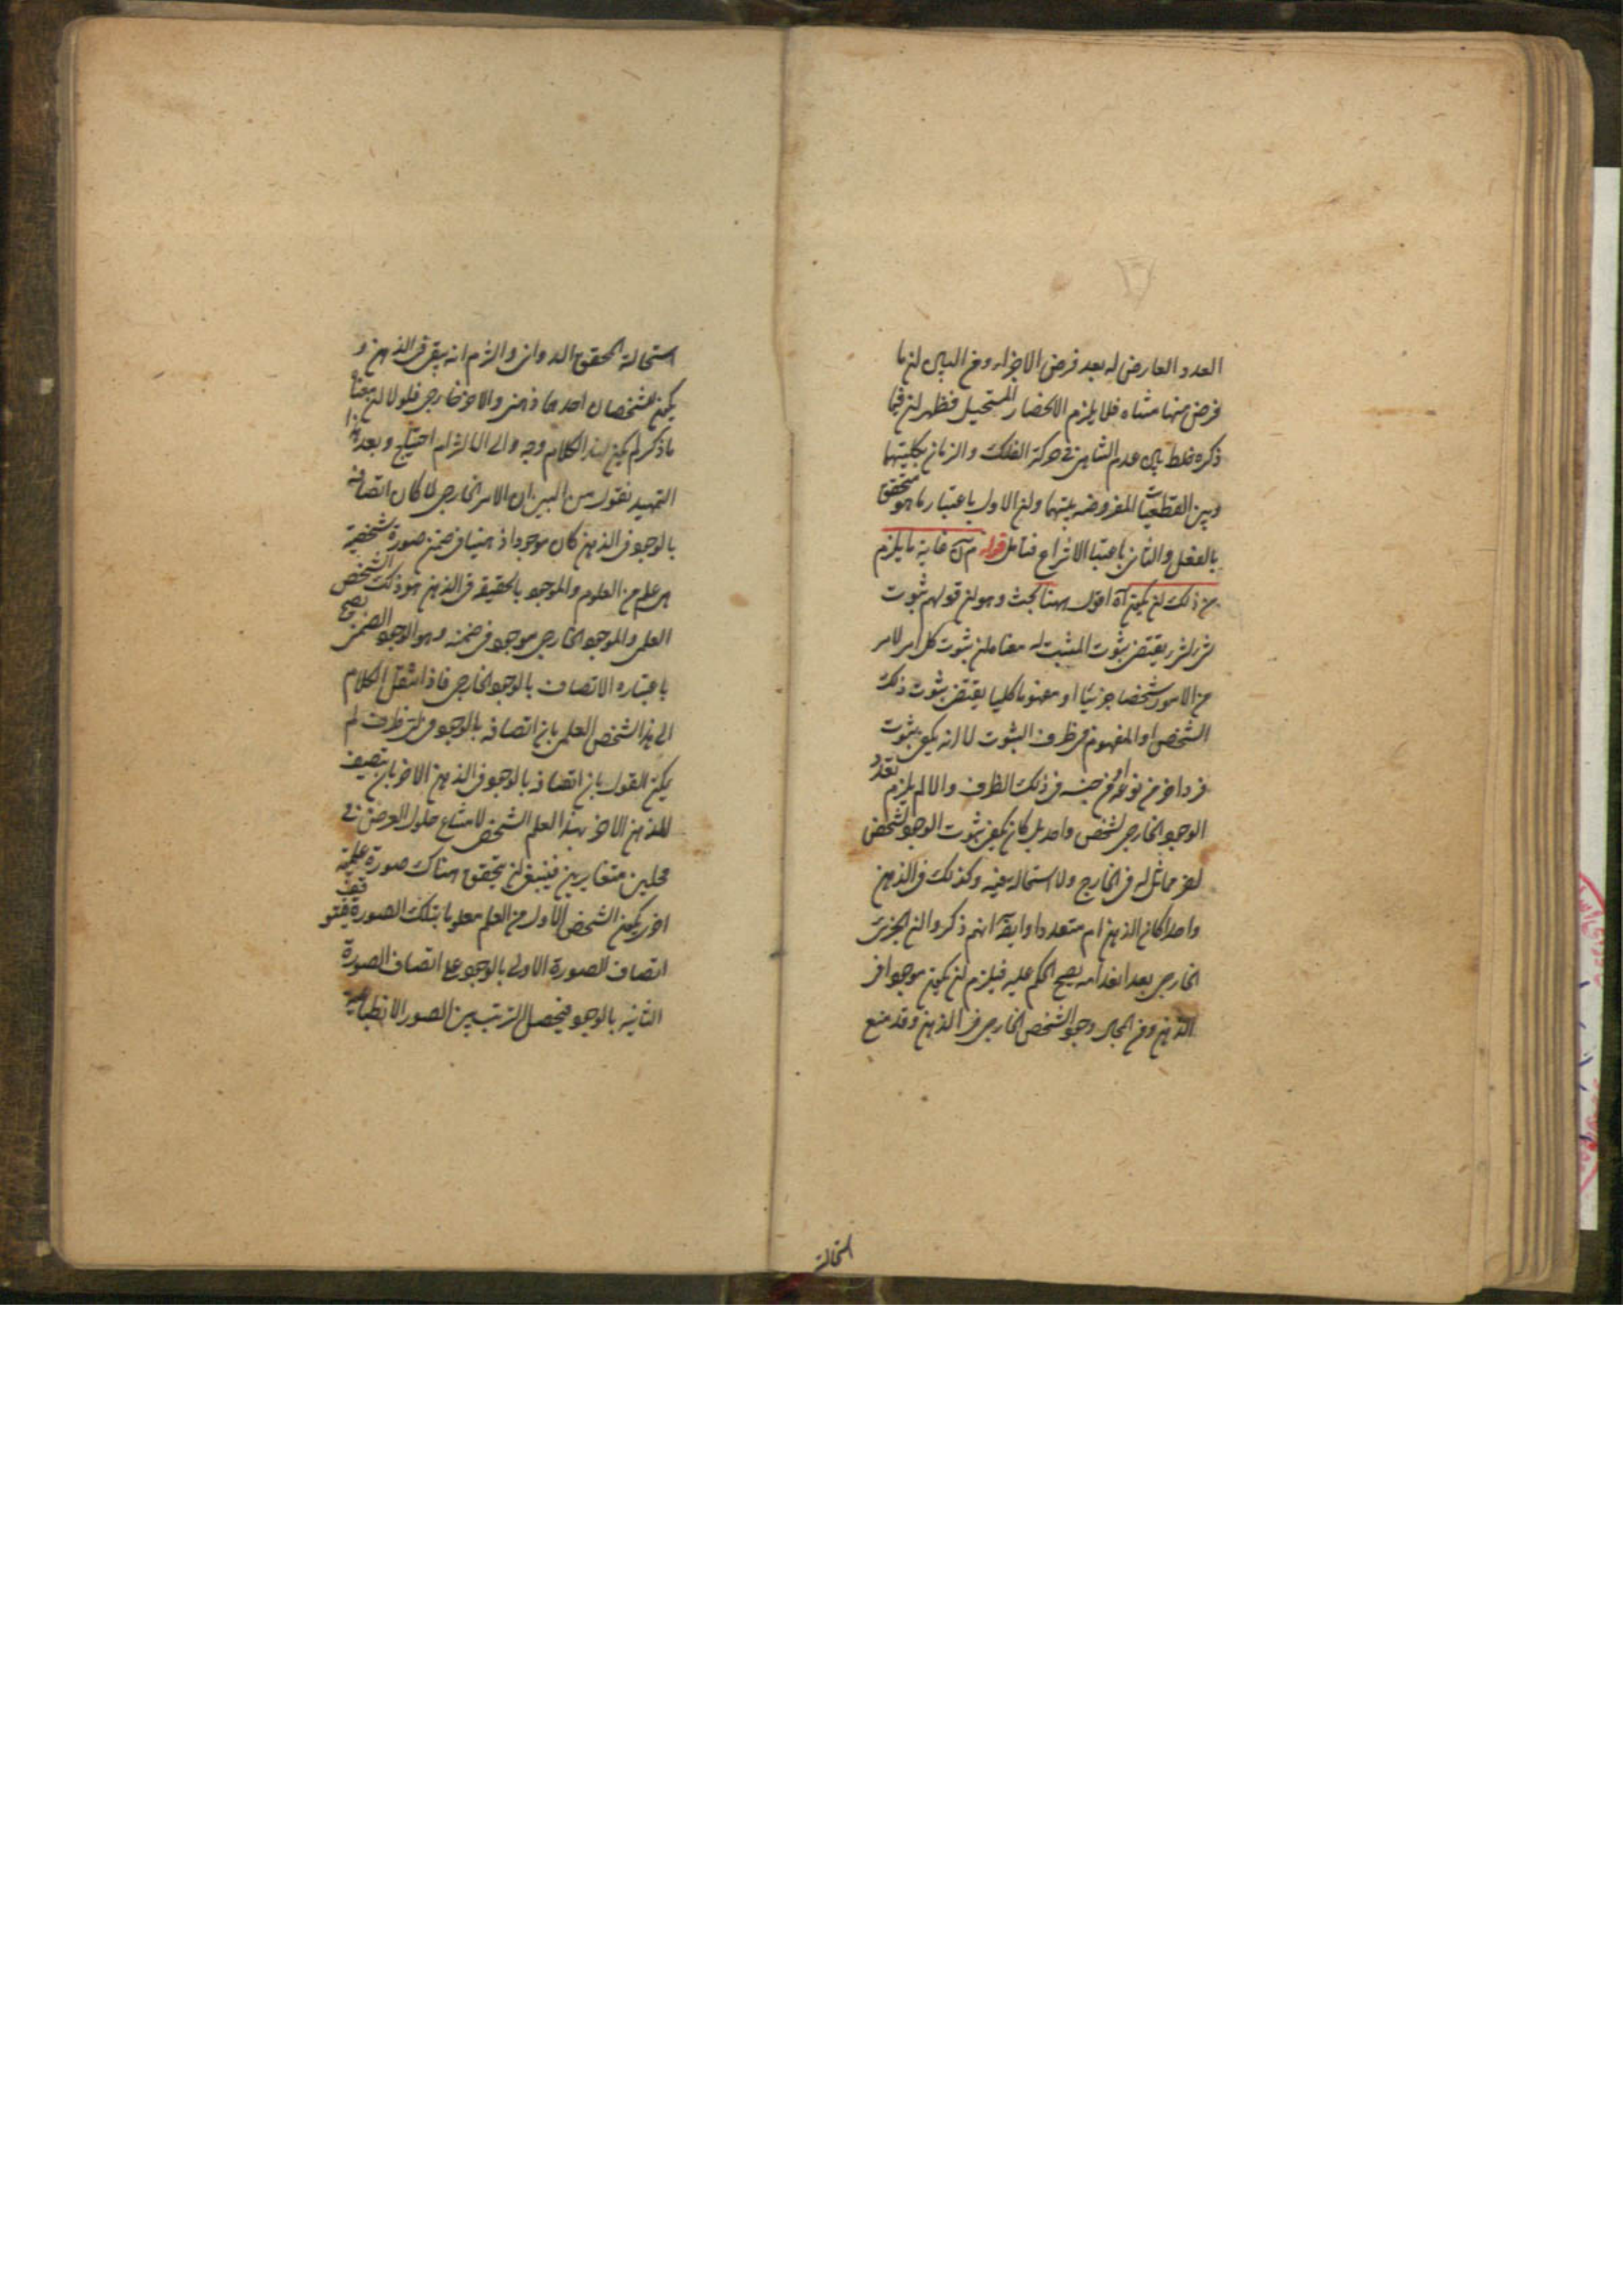 العدد العارض له بعد فرض الاجزاء ومن البين ان ما
فرض منها متناه فلا يلزم الانحصار المستحيل فظهر ان فيما
ذكره خلط بين عدم التناهي في حركة الفلك والزمان بكليتهما
وبين القطعات المفروضة بينهما وان الاول باعتبار ما هو متحقق
بالفعل والثاني باعتبار الانتزاع فتأمل قوله غاية ما يلزم
من ذلك ان يكون آه اقول ههنا بحث وهو ان قولهم ثبوت
شئ لشئ يقتضى ثبوت المثبت له معناه ان ثبوت كل امر لامر
من الامور شخصا جزئيا او مفهوما كليا يقتضى ثبوت ذلك
الشخص او المفهوم فى ظرف الثبوت لا انه يكفى ثبوت
فرد اخر من نوعه او من جنسه فى ذلك الظرف والا لم يلزم تقدم
الوجود الخارجى لشخص واحد بل كان يكفى ثبوت الوجود لشخص
اخر مماثل له فى الخارج ولا استحالة فيه وكذلك فى الذهن
واحدا كان الذهن ام متعددا وايضا انهم ذكروا ان الجزئى
الخارجى بعد انعدامه يصح الحكم عليه فيلزم ان يكون موجودا فى
الذهن ومن المحال وجود الشخص الخارجى فى الذهن وقد منع
استحالته
استحالته المحقق الدوانى والتزم انه يبقى فى الذهن و
يكون لشخصان احدهما ذهنى والاخر خارجى فلولا ان معناه
ما ذكر لم يكن لهذا الكلام وجه ولا الى التزام احتياج وبعد هذا
التمهيد نقول من البين ان الامر الخارجى لما كان اتصافه
بالوجود فى الذهن كان موجودا ذهنيا فى ضمن صورة شخصية
هى علم من العلوم والموجود بالحقيقة فى الذهن هو ذلك الشخص
العلمى والموجود الخارجى موجود فى ضمنه وهو الوجود الضمنى يصح
باعتباره الاتصاف بالوجود الخارجى فاذا انتقل الكلام
الى هذا الشخص العلمى بان اتصافه بالوجود فى اى ظرف لم
يمكن القول بان اتصافه بالوجود فى الذهن الاخر بان يتصف
الذهن الاخر بهذا العلم الشخصى لامتناع حلول العرض فى
محلين متغايرين فينبغى ان يتحقق هناك صورة علمية
اخرى يكون الشخص الاول من العلم معلوما بتلك الصورة فيتوقف
اتصاف الصورة الاولى بالوجود على اتصاف الصورة
الثانية بالوجود فيحصل الترتب بين الصور الانطباعية